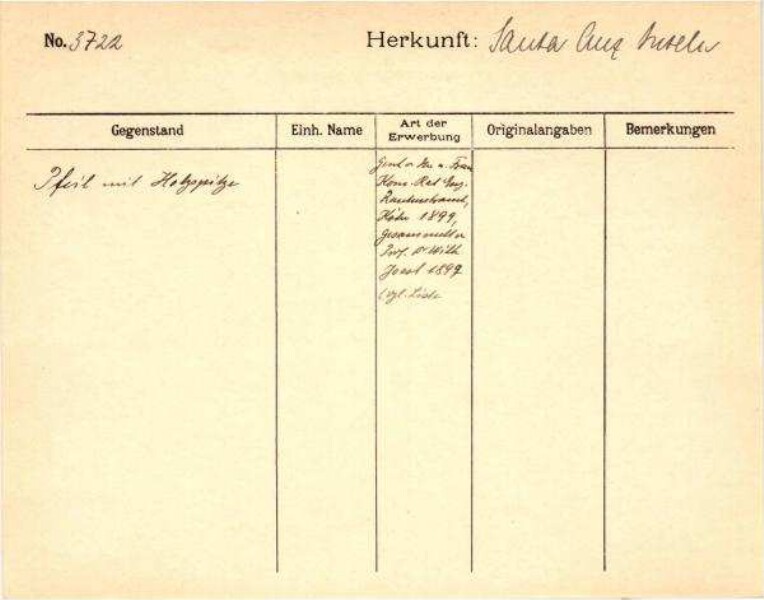 No. 3722
Herkunft: Santa Cruz Inseln
Gegenstand
Einh. Name
Art der Erwerbung
Originalangaben
Bemerkungen
Pfeil mit Holzspitze
u. Frau
Kom. Rat Eug.
Rautenstrauch,
Köln 1899,
gesammelt v.
Prof. Dr Wilh.
Joest 1897
(vgl. Liste